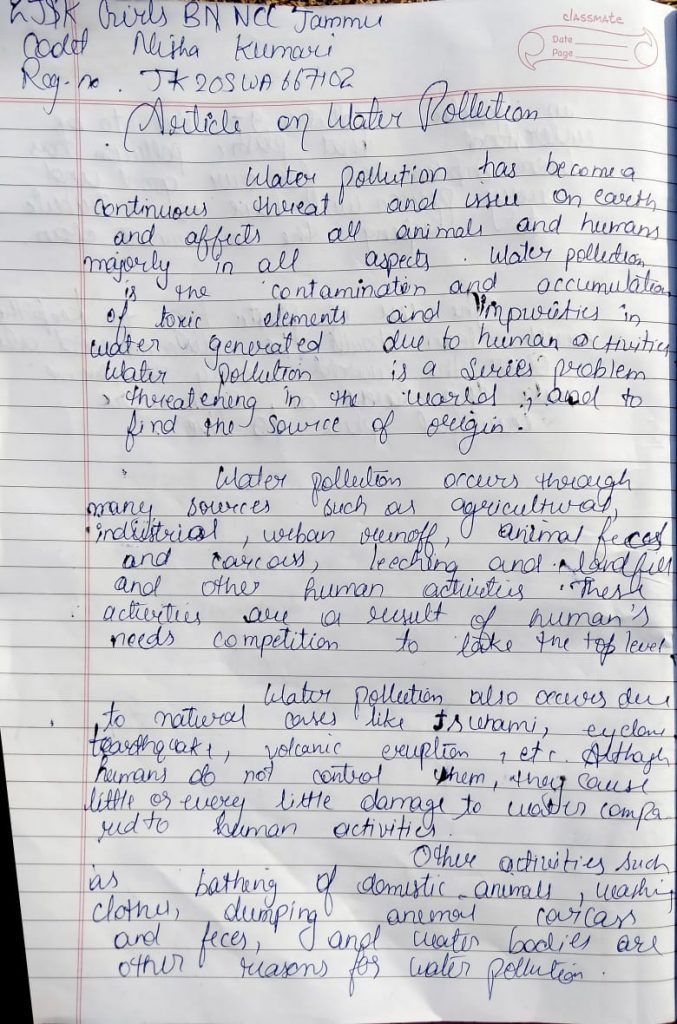 2 J&K Girls BN NCC Jammu
Cadet Nisha Kumari
Reg-no. JK20SWA667102
classmate
Date
Page
Article on Water Pollution
Water pollution has become a
continuous threat and issue on earth
and affects all animals and humans
majorly in all aspects. Water pollution
is the contamination and accumulation
of toxic elements and impurities in
water generated due to human activities
Water pollution is a series problem
threatening in the world, and to
find the source of origin.
Water pollution occurs through
many sources such as agricultural,
industrial, urban runoff, animal feces
and carcass, leeching and landfill
and other human activities. These
activities are a result of human's
needs competition to take the top level
Water pollution also occurs due
to natural cases like Tsunami, cyclone
earthquake, volcanic eruption, etc. Although
humans do not control them, they cause
little or every little damage to water compa
red to human activities.
Other activities such
as bathing of domestic animals, washing
clothes, dumping animal carcass
and feces, and water bodies are
other reasons for water pollution.